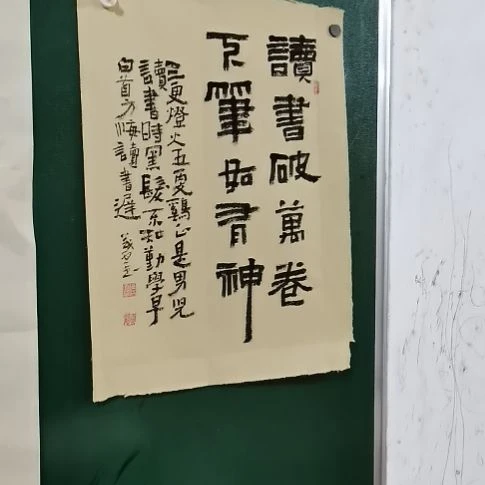 讀書破萬卷
下筆如有神
三更燈火五更鷄正是男兒
讀書時黑髮不知勤學早
白首方悔讀書遲